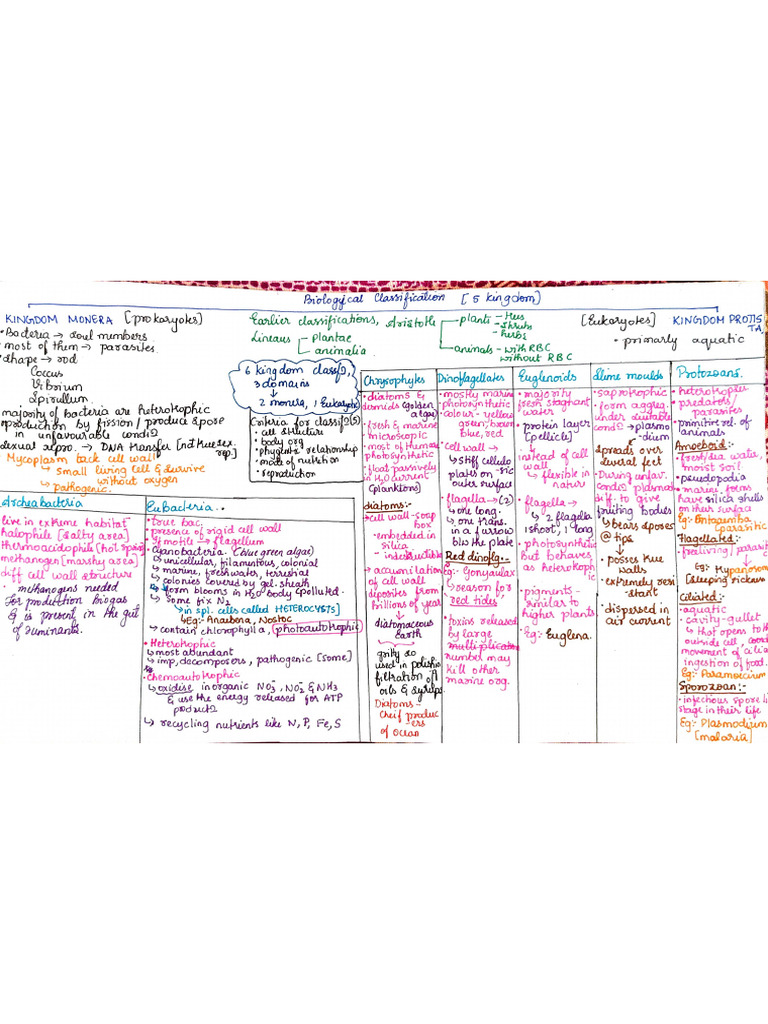 Biological Classification [5 kingdom]
KINGDOM MONERA [prokaryotes]
• Bacteria → soul numbers
• most of them → parasites
• shape → rod
Coccus
Vibrium
Spirullum
majority of bacteria are heterotrophic
reproduction by fission / produce spose
in unfavourable cond
sexual repro. → DNA transfer [not true sex.
rep]
Mycoplasm lack cell wall
↳ small living cell & survive
without oxygen
↳ pathogenic.
Earlier classifications, Aristotle
plants — Hers
— shrubs
— herbs
animals — with RBC
without RBC
Linaeus — plantae
animalia
6 kingdom class,
3 domains
↓
2 monera, 1 Eukaryotic
Criteria for classif(5)
• cell structure
• body org
• phygenetic relationship
• mode of nutrition
• reproduction
[Eukaryotes] KINGDOM PROTIS
TA
• primarly aquatic
Archeabacteria
live in extreme habitat
halophile [salty area]
thermoacidophile [hot spring]
methanogen [marshy area]
diff cell wall structure
methanogens needed
for production biogas
& is present in the gut
of ruminants.
Eubacteria.
• true bac.
• presence of rigid cell wall
• If motile → flagellum
Cyanobacteria (blue green algae)
↳ unicellular, filamentous, colonial
↳ marine, freshwater, terrestial
↳ colonies covered by gel. sheath
↳ form blooms in H2O body (polluted.
↳ some fix N2
↳ in spl. cells called HETEROCYSTS]
↳ Eg:- Anaubona, Nostoc
↳ contain chlorophyll a, photoautotrophic
• Heterotrophic
↳ most abundant
↳ imp, decomposers, pathogenic [some]
• Chemoautotrophic
↳ oxidise inorganic NO3⁻, NO2⁻ & NH3
& use the energy released for ATP
↳ recycling nutrients like N, P, Fe, S
Chrysophytes
• diatoms &
desmids (golden
algae)
• fresh & marine
• microscopic
• most of them are
photosynthetic
• float passively
in H2O current
(planktons)
diatoms:-
• cell wall - soap
box
- embedded in
silica
- indestructible
→ accumilation
of cell wall
deposites from
billions of year
↓
diatomaceous
Earth
↓
gritty so
used in polishing
filtration of
oils & syrups
Diatoms -
Cheif produc
- ers
of ocean
Dinoflagellates
• mostly marine
photosynthetic
• colour - yellow
green, brown
blue, red
• cell wall →
↳ stiff cellulo
plates on - sic
outer surface
• flagella → (2)
↳ one long.
↳ one trans.
in a furrow
b/w the plate
Red dinoflg. -
Eg:- Gonyaulax
↳ reason for
red tides
• toxins released
by large
multiplication
number may
kill other
marine org.
Euglenoids
• majority
fresh stagnant
water
• protein layer
(pellicle)
↓
instead of cell
wall
↳ flexible in
nature
• flagella →
↳ 2 flagella
1 shoot, 1 long
• photosynthetic
but behaves
as heterotroph
ic
• pigments -
similar to
higher plants.
• Eg:- Euglena.
Slime moulds
• saprotrophic
• form aggreg.
under suitable
cond → plasmo
- dium
↓
spreads over
several feet
• During unfav.
cond plasmod
diff. to give
fruiting bodies
↳ bears spores
@ tips
↓
• posses true
walls
• extremely resi
- stant
• dispersed in
air current
Protozoans.
• heterotrophes
• predators/
parasites
• primitive rel. of
animals
Amoeboid:-
• fresh/sea water,
moist soil
• pseudopodia
• marine forms
have silica shells
on their surface
Eg:- Entamoeba
parasitic
Flagellated:-
• freeliving / parasit
• Eg:- Trypanosom
[sleeping sickness
Ciliated:-
• aquatic
• cavity - gullet
↳ that opens to
outside cell, coord
movement of cilia
ingestion of food.
Eg:- Paramoecium
Sporozoan:-
• infectious spore li
stage in their life
Eg:- Plasmodium
[malaria]